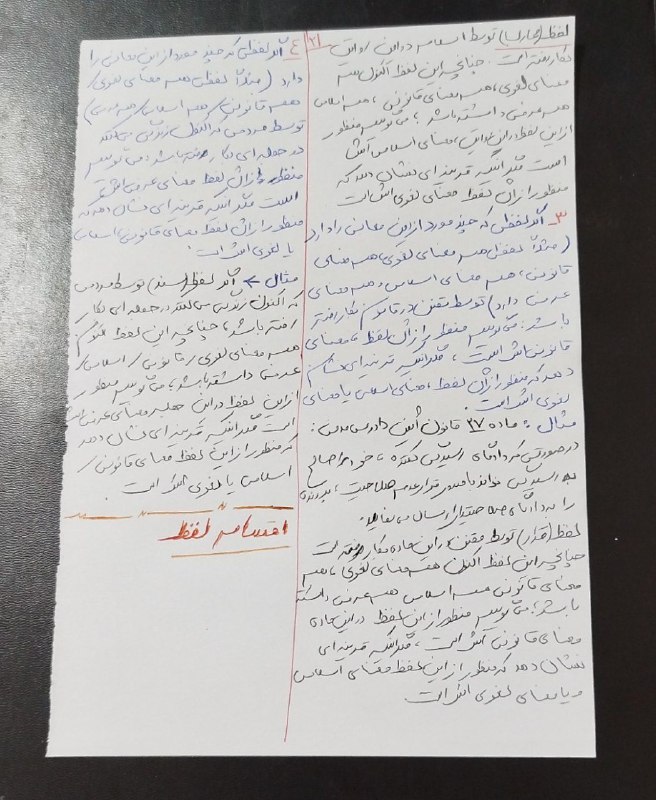 لفظ (خیارات) توسط اسلام در این روایت
بکار رفته است. چنانچه این لفظ اکنون هم
معنای لغوی، هم معنای قانونی، هم اسلامی
هم عرفی داشته باشد؛ می‌گوییم منظور
از این لفظ در این روایت، معنای اسلامی آنش
است مگر آنکه قرینه‌ای نشان دهد که
منظور از آن لفظ معنای لغوی‌اش است
۳_ اگر لفظی که چند مورد از این معانی را دارد
(مثلاً لفظی هم معنای لغوی، هم معنای
قانونی، هم معنای اسلامی و هم معنای
عرفی دارد) توسط مقنن در قانون بکار رفته
باشد؛ می‌گوییم منظور از آن لفظ، معنای
قانونی‌اش است، مگر آنکه قرینه‌ای نشان
دهد که منظور از آن لفظ، معنای اسلامی یا معنای
لغوی‌اش است.
مثال: ماده ۲۷ قانون آئین دادرسی مدنی:
در صورتی که دادگاه رسیدگی کننده، خود را صالح
به رسیدگی نداند با صدور قرار عدم صلاحیت، پرونده
را به دادگاه صلاحیتدار ارسال می‌نماید.
لفظ (قرار) توسط مقنن در این ماده بکار رفته است
چنانچه این لفظ اکنون هم معنای لغوی، هم
معنای قانونی هم اسلامی هم عرفی داشته
باشد؛ می‌گوییم منظور از این لفظ در این ماده
معنای قانونی آنش است، مگر آنکه قرینه‌ای
نشان دهد که منظور از این لفظ معنای اسلامی
و یا معنای لغوی‌اش است.
۴_ اگر لفظی که چند مورد از این معانی را
دارد (مثلاً لفظی هم معنای لغوی/
هم قانونی/ هم اسلامی/ هم عرفی)
توسط مردمی که اکنون زندگی می‌کنند
در جمله‌ای بکار رفته باشد؛ می‌گوییم
منظور از آن لفظ معنای عرفی‌اش
است مگر آنکه قرینه‌ای نشان دهد که
منظور از آن لفظ معنای قانونی/ اسلامی
یا لغوی‌اش است.
مثال ← اگر لفظ (سند) توسط مردمی
که اکنون زندگی می‌کنند در جمله‌ای بکار
رفته باشد، چنانچه این لفظ اکنون
هم معنای لغوی/ قانونی/ اسلامی/
عرفی داشته باشد، می‌گوییم منظور
از این لفظ در این جمله معنای عرفی‌اش
است مگر آنکه قرینه‌ای نشان دهد
که منظور از این لفظ معنای قانونی/
اسلامی یا لغوی‌اش است.
اقسام لفظ